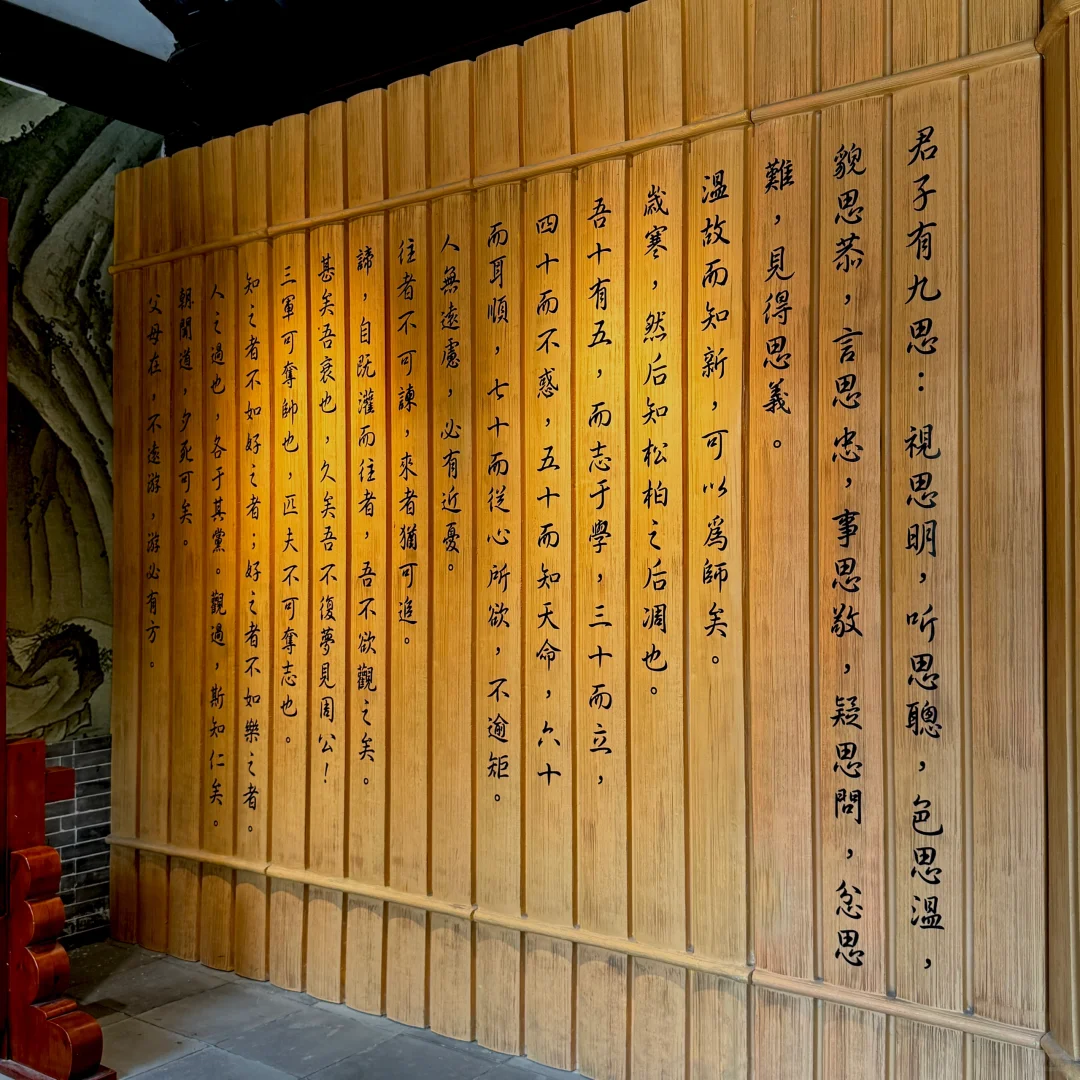 君子有九思：視思明，听思聰，色思溫，
貌思恭，言思忠，事思敬，疑思問，忿思
難，見得思義。
溫故而知新，可以爲師矣。
歲寒，然后知松柏之后凋也。
吾十有五，而志于學，三十而立，
四十而不惑，五十而知天命，六十
而耳順，七十而從心所欲，不逾矩。
人無遠慮，必有近憂。
往者不可諫，來者猶可追。
諦，自既灌而往者，吾不欲觀之矣。
甚矣吾衰也，久矣吾不復夢見周公！
三軍可奪帥也，匹夫不可奪志也。
知之者不如好之者；好之者不如樂之者。
人之過也，各于其黨。觀過，斯知仁矣。
朝聞道，夕死可矣。
父母在，不遠游，游必有方。